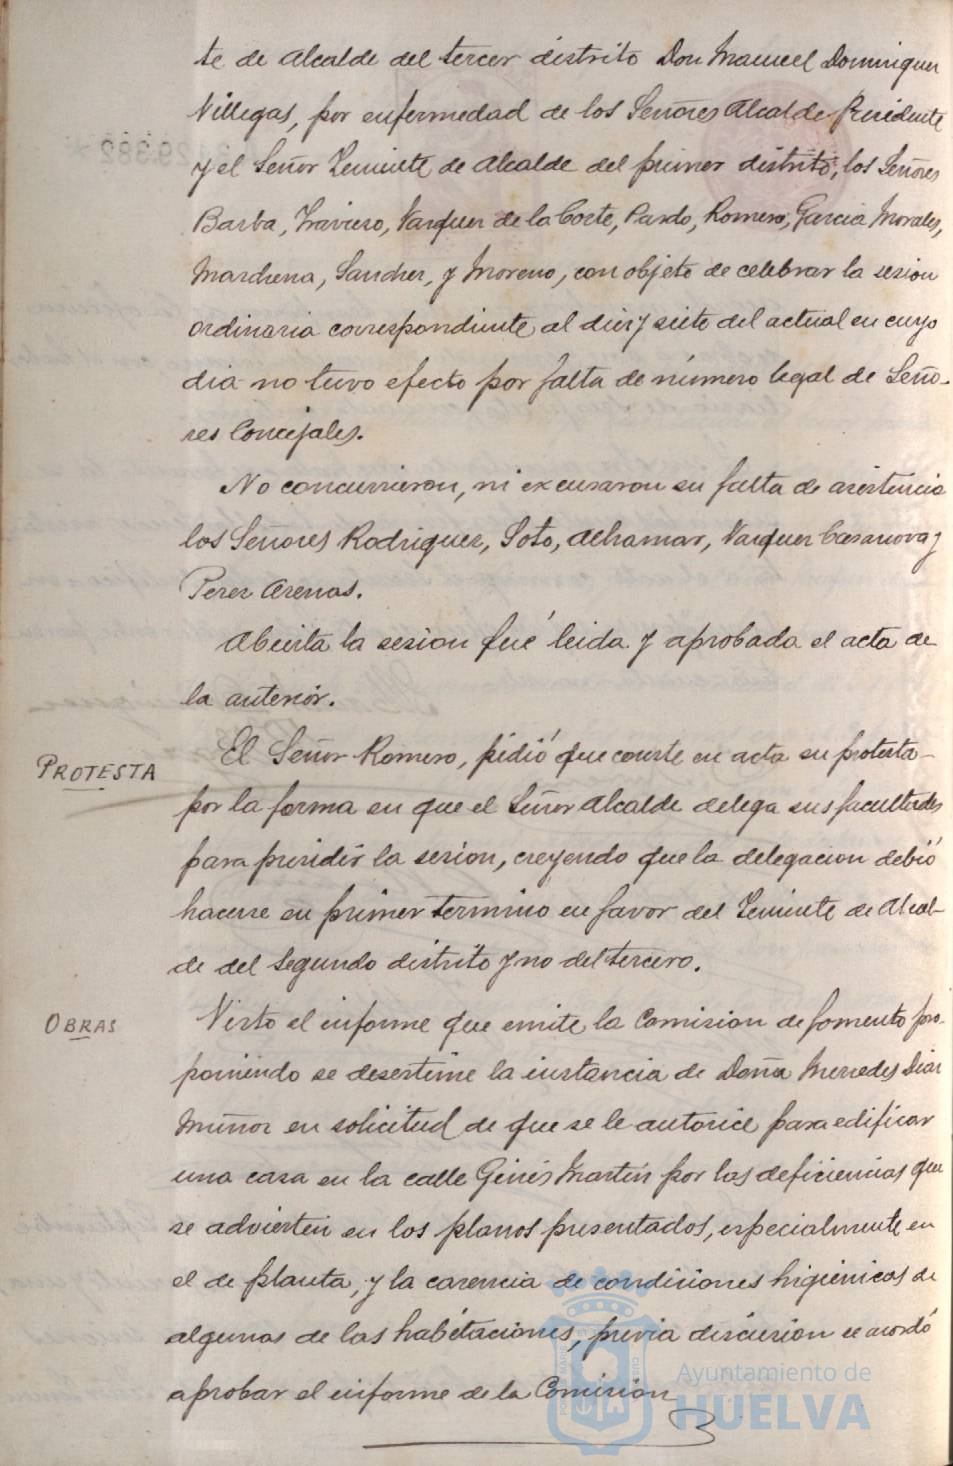 te de Alcalde del tercer distrito Don Manuel Dominguez
Villegas, por enfermedad de los Señores Alcalde Presidente
y el Señor Teniente de Alcalde del primer distrito, los Señores
Barba, Travieso, Vazquez de la Corte, Pardo, Romero, Garcia Morales,
Marchena, Sanchez, y Moreno, con objeto de celebrar la sesion
ordinaria correspondiente al diez y siete del actual en cuyo
dia no tuvo efecto por falta de número legal de Seño-
res Concejales.
No concurrieron, ni excusaron su falta de asistencia
los Señores Rodriguez, Soto, Alhamar, Vazquez Casanova y
Perez Arenas.
Abierta la sesion fué leida y aprobada el acta de
la anterior.
PROTESTA
El Señor Romero, pidió que conste en acta su protesta-
por la forma en que el Señor Alcalde delega sus facultades
para presidir la sesion, creyendo que la delegacion debió
hacerse en primer termino en favor del Teniente de Alcal-
de del segundo distrito y no del tercero.
OBRAS
Visto el informe que emite la Comision de fomento pro-
poniendo se desestime la instancia de Doña Mercedes Diaz
Muñoz en solicitud de que se le autorice para edificar
una casa en la calle Ginés Martín por las deficiencias que
se advierten en los planos presentados, especialmente en
el de planta, y la carencia de condiciones higiénicas de
algunas de las habitaciones, previa discusion se acordó
aprobar el informe de la Comision
Ayuntamiento de
HUELVA